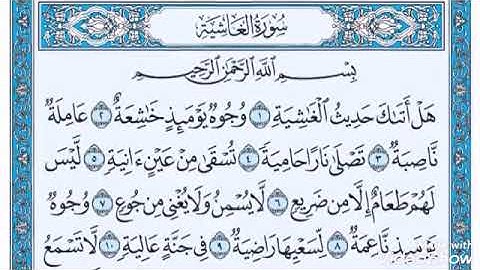 سُورَةُ الغَاشِيَةِ
بِسْمِ اللَّهِ الرَّحْمَٰنِ الرَّحِيمِ
هَلْ أَتَىٰكَ حَدِيثُ الْغَٰشِيَةِ ١ وُجُوهٌ يَوْمَئِذٍ خَٰشِعَةٌ ٢ عَامِلَةٌ
نَّاصِبَةٌ ٣ تَصْلَىٰ نَارًا حَامِيَةً ٤ تُسْقَىٰ مِنْ عَيْنٍ ءَانِيَةٍ ٥ لَّيْسَ
لَهُمْ طَعَامٌ إِلَّا مِن ضَرِيعٍ ٦ لَّا يُسْمِنُ وَلَا يُغْنِي مِن جُوعٍ ٧ وُجُوهٌ
يَوْمَئِذٍ نَّاعِمَةٌ ٨ لِّسَعْيِهَا رَاضِيَةٌ ٩ فِي جَنَّةٍ عَالِيَةٍ ١٠ لَّا تَسْمَعُ
with